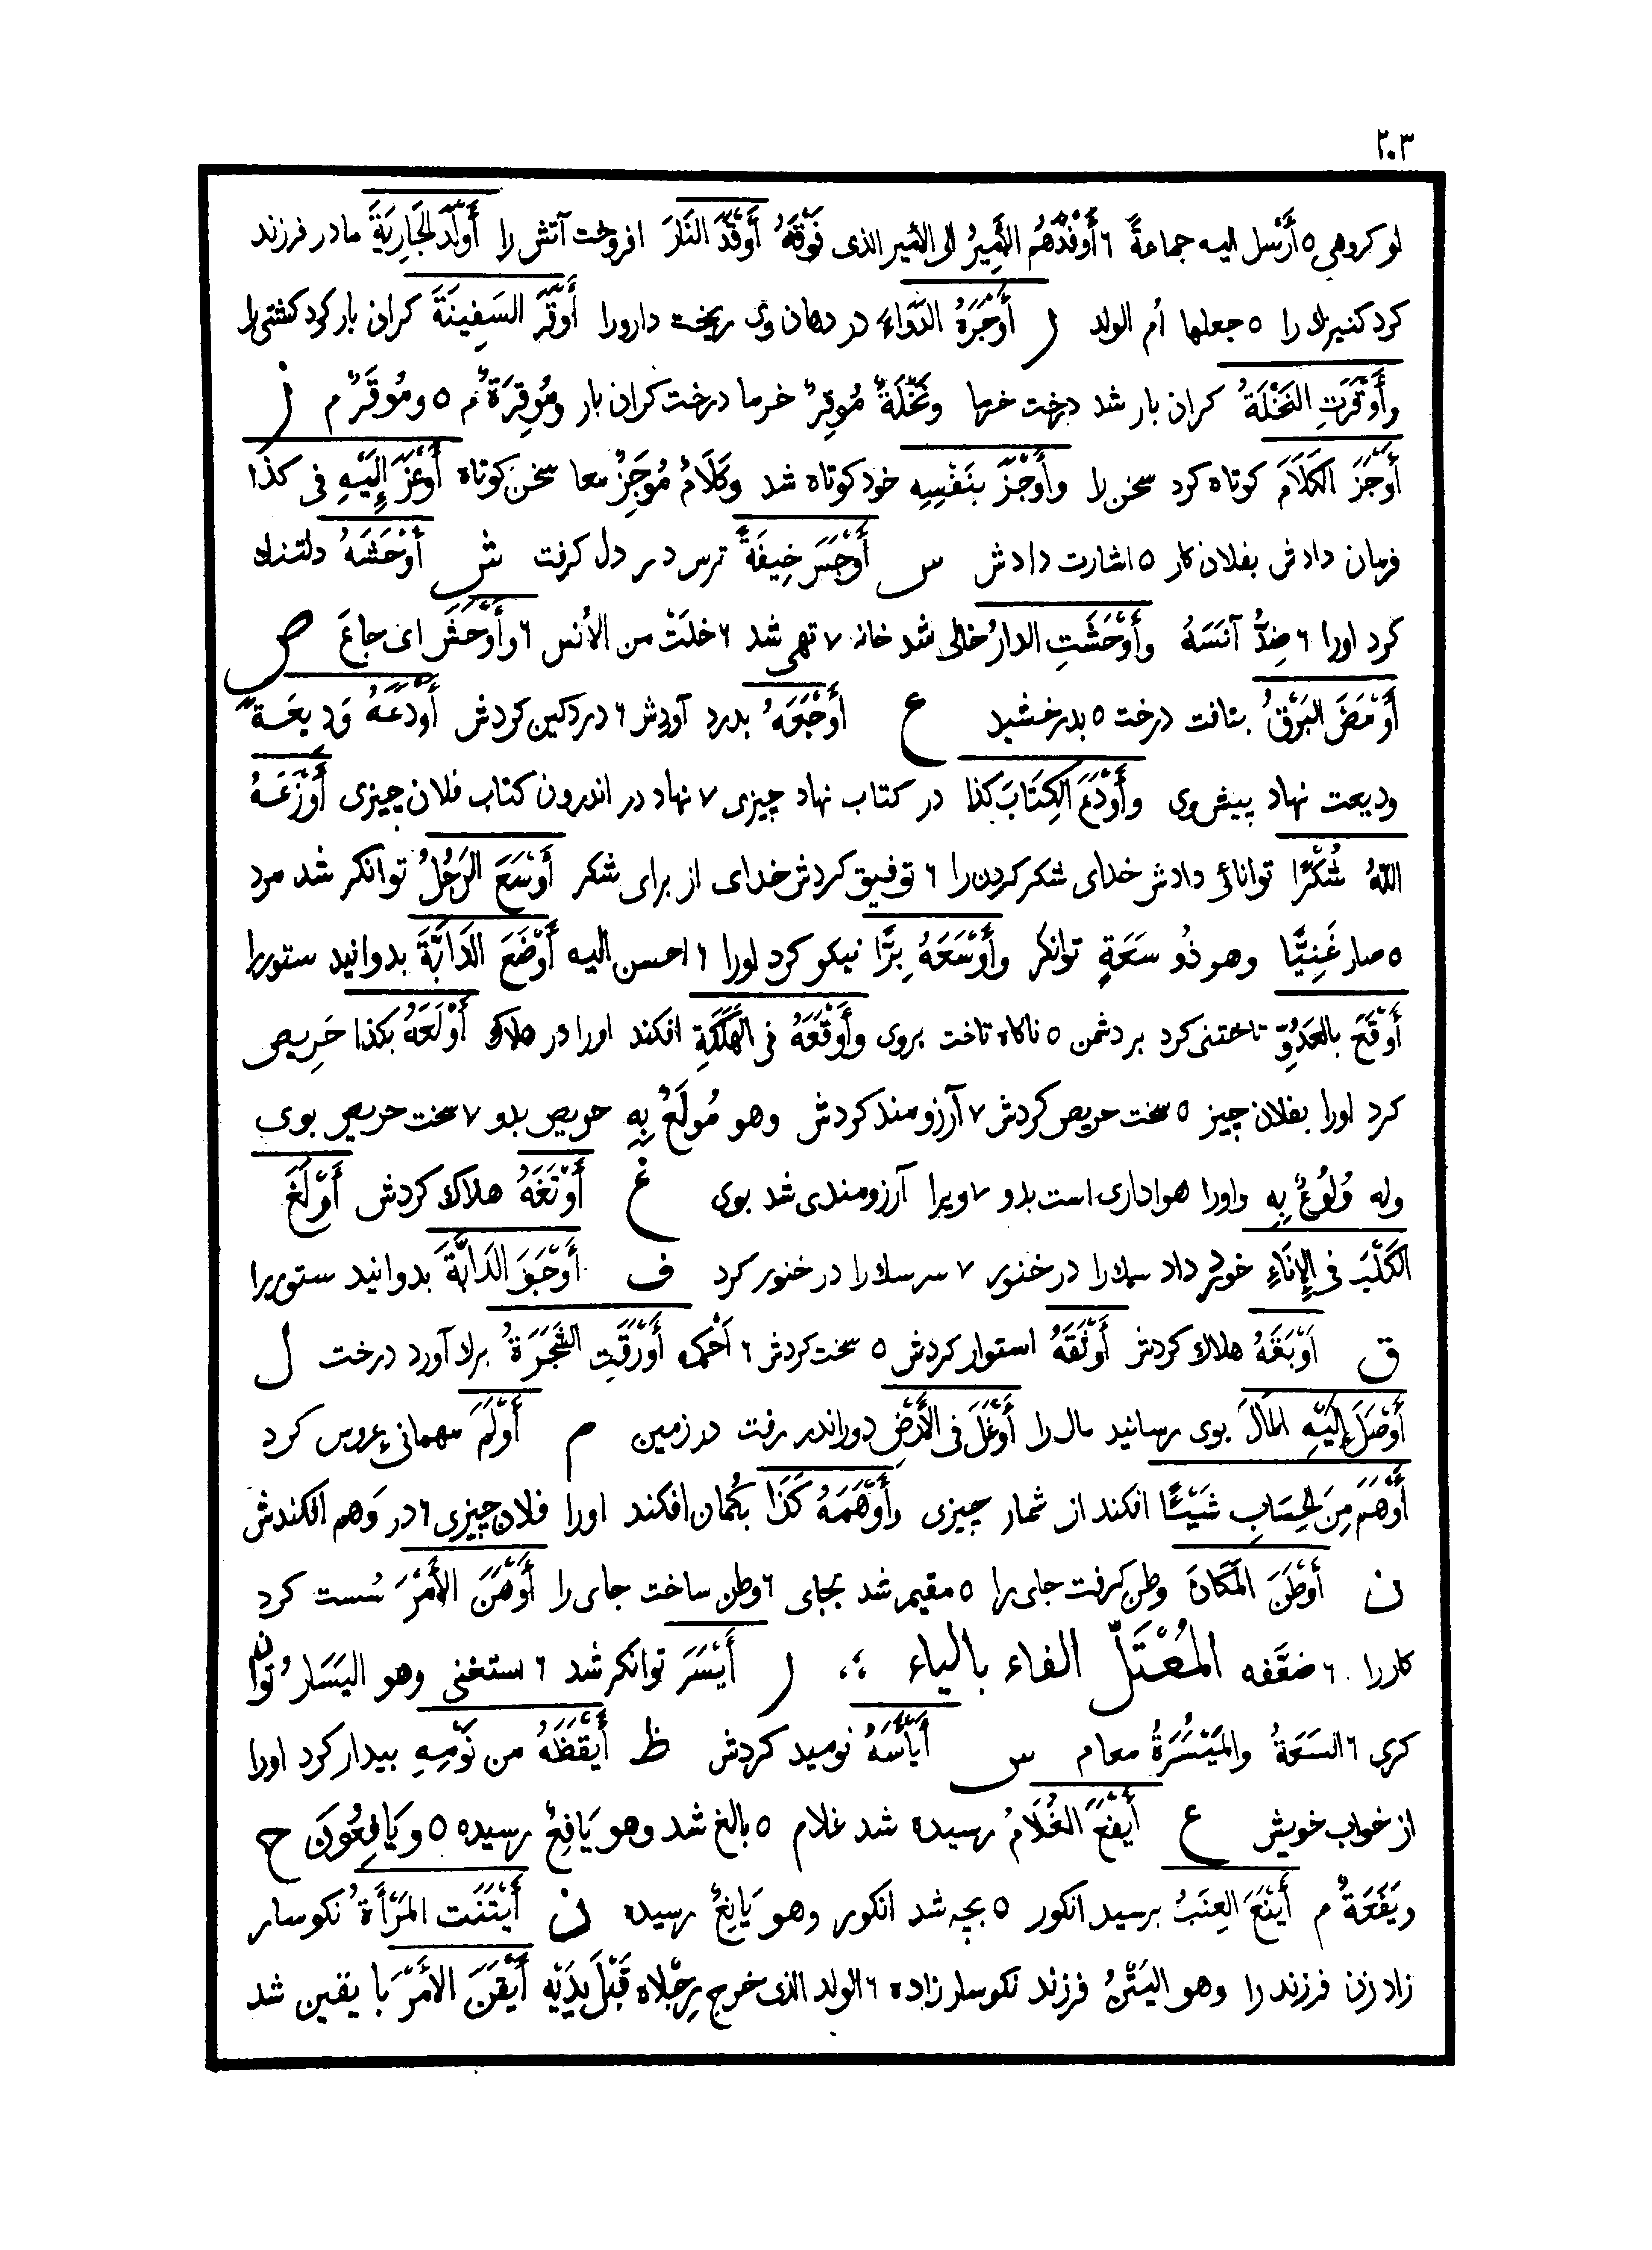 ٢٠٣
لو كروهى ٥ أَرْسل اليه جماعةً ٦ أَوْفَدَهُم الأَمِيرُ الى الأمير الذى فَوْقَهُ أَوْقَدَ النَارَ افروخت آتش را أَوْلَدَ الجَارِيَةَ مادر فرزند
كرد كنيزك را ٥ جعلها أم الولد ر أَوْجَرَهُ الدَّوَاءَ در دهان وى ريخت دارورا أَوْقَرَ السَفِينَةَ كران بار كرد كشتى را
وأَوْقَرَتِ النَخْلَةُ كران بار شد درخت خرما ونَخْلَةٌ مُوقِرٌ خرما درخت كران بار ومُوقِرَةٌ م ٥ ومُوقَرٌ م ز
أَوْجَزَ الكَلَامَ كوتاه كرد سخن را وأَوْجَزَ بنَفْسِهِ خود كوتاه شد وكَلَامٌ مُوجَزٌ معا سخن كوتاه أَوْعَزَ إِلَيْهِ فى كذا
فرمان دادش بفلان كار ٥ اشارت دادش س أَوْجَسَ خِيفَةً ترس در دل كرفت ش أَوْحَشَهُ دلتنك
كرد اورا ٦ ضِدُّ آنَسَهُ وأَوْحَشَتِ الدارُ خالى شد خانه ٧ تهى شد ٦ خلَتْ من الأنس ٦ وأَوْحَشَ اى جاعَ ص
أَوْمَضَ البَرْقُ بتافت درخت ٥ بدرخشيد ع أَوْجَعَهُ بدرد آوردش ٦ دردكين كردش أَودَعَهُ وَدِيعَةً
وديعت نهاد پيش وى وأَوْدَعَ الكِتَابَ كذا در كتاب نهاد چيزى ٧ نهاد در اندرون كتاب فلان چيزى أَوْزَعَهُ
اللّهُ شُكْرًا توانائى دادش خداى شكر كردن را ٦ توفيق كردش خداى از براى شكر أَوْسَعَ الرَجُلُ توانكر شد مرد
٥ صار غَنِيًّا وهو ذُو سَعَةٍ توانكر وأَوْسَعَهُ بِرًّا نيكو كرد اورا ٦ احسن اليه أَوْضَعَ الدَابَّةَ بدوانيد ستوررا
أَوْقَعَ بالعَدُوِّ تاختنى كرد بر دشمن ٥ ناكاه تاخت بروى وأَوْقَعَهُ فى الهَلَكَةِ افكند اورا در هلاك أَوْلَعَهُ بكذا حَرِيص
كرد اورا بفلان چيز ٥ سخت حريص كردش ٧ آرزومند كردش وهو مُولَعٌ بِهِ حريص بدو ٧ سخت حريص بوى
وله وُلُوعٌ بِهِ واورا هوادارى است بدو ٧ ويرا آرزومندى شد بوى غ أَوْتَغَهُ هلاك كردش أَوْلَغَ
الكَلْبَ فى الإِنَاءِ خورد داد سك را در خنور ٧ سر سك را در خنور كرد ف أَوْجَفَ الدَابَّةَ بدوانيد ستوررا
ق أَوْبَقَهُ هلاك كردش أَوْثَقَهُ استوار كردش ٥ سخت كردش ٦ أحْكمه أَوْرَقَتِ الشَجَرَةُ برك آورد درخت ل
أَوْصَلَ إِلَيْهِ المَالَ بوى رسانيد مال را أَوْغَلَ فى الأَرْضِ دور اندر رفت در زمين م أَوْلَمَ مهمانئ عروس كرد
أَوْهَمَ مِنَ الحِسَابِ شَيْئًا افكند از شمار چيزى وأَوْهَمَهُ كَذَا بكُمان افكند اورا فلان چيزى ٦ در وَهم افكندش
ن أَوْطَنَ المَكَانَ وطن كرفت جاى را ٥ مقيم شد بجاى ٦ وطن ساخت جاى را أَوْهَنَ الأَمْرَ سُست كرد
كاررا ٦ ضعّفه المُعْتَلّ الفاء بالياء ر أَيْسَرَ توانكر شد ٦ استغنى وهو اليَسَارُ توان
كرى ٦ السَعَةُ والمَيْسُرَةُ معا م س أَيْأَسَهُ نوميد كردش ظ أَيْقَظَهُ من نَوْمِهِ بيدار كرد اورا
از خواب خويش ع أَيْفَعَ الغُلَامُ رسيده شد غلام ٥ بالغ شد وهو يَافِعٌ رسيده ٥ ويَافِعُونَ ح
ويَفَعَةٌ م أَيْنَعَ العِنَبُ برسيد انكور ٥ پخته شد انكور وهو يَانِعٌ رسيده ن أَيْتَنَت المَرْأَةُ نكوسار
زاد زن فرزند را وهو اليَتْنُ فرزند نكوسار زاده ٦ الولد الذى خرج رِجْلاه قَبْلَ يَدَيْه أَيْقَنَ الأَمْرَ با يقين شد